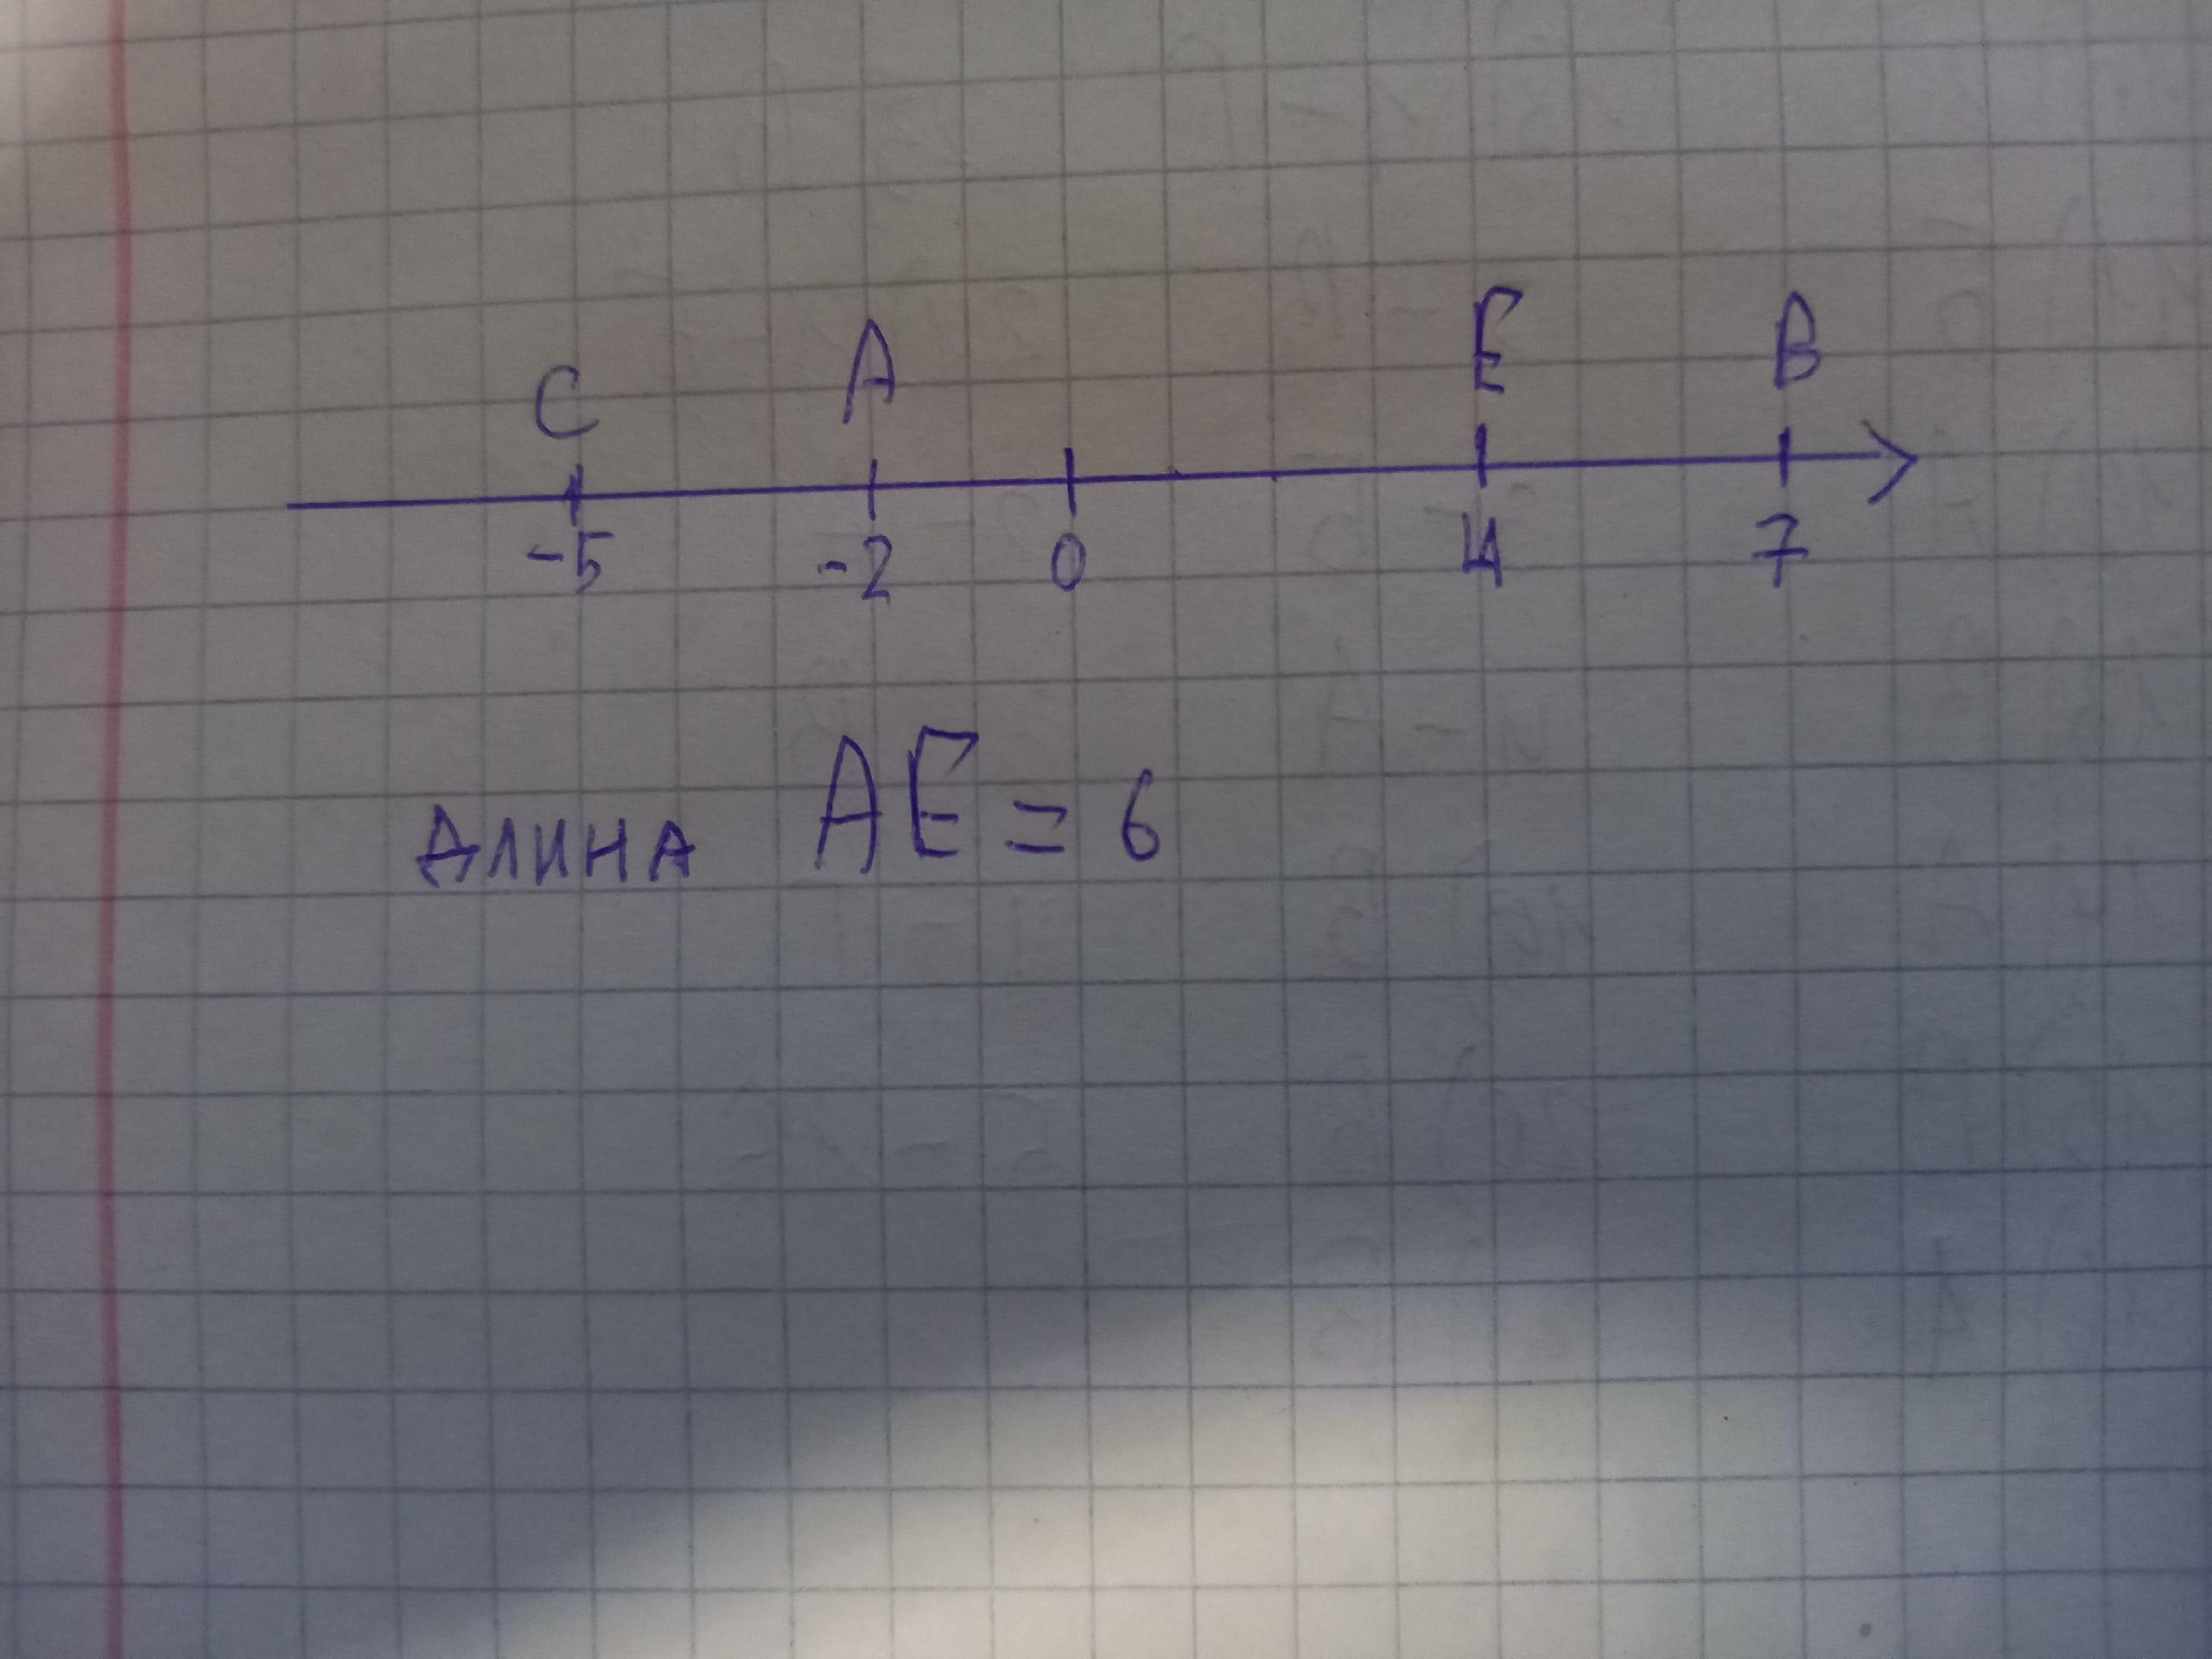 C A E B
-5 -2 0 4 7
длина AE = 6